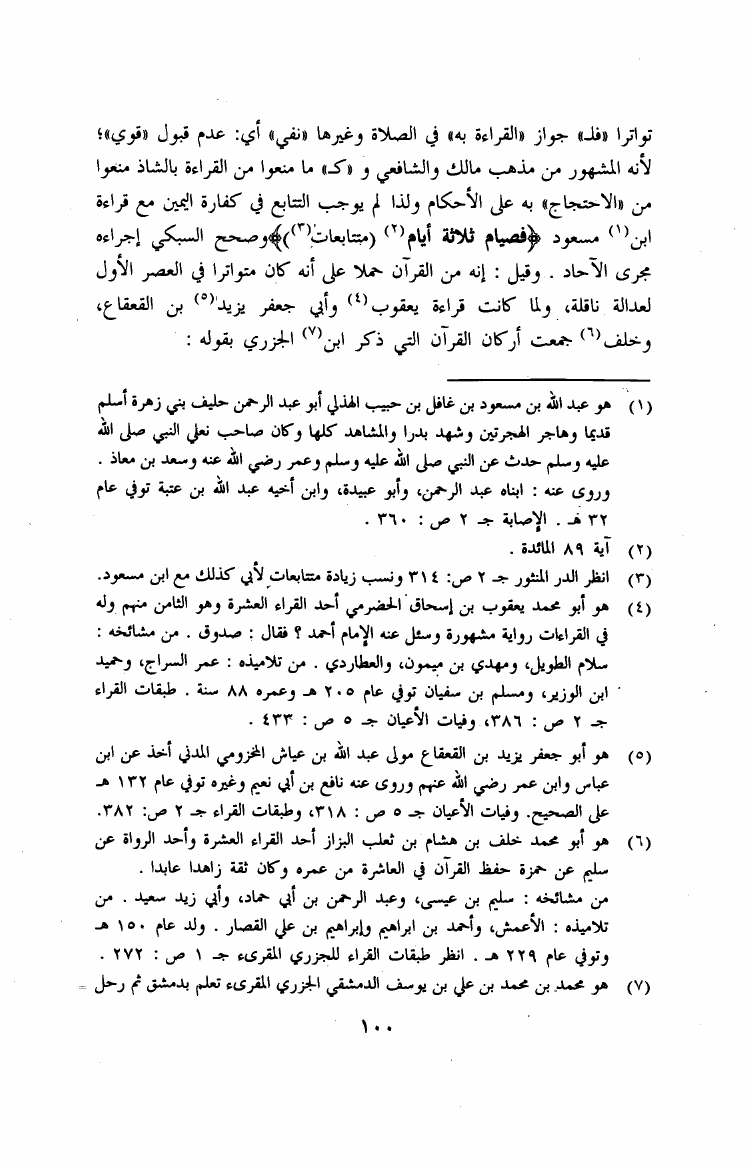 تواترا «فلـ» جواز «القراءة به» في الصلاة وغيرها «نفي» أي: عدم قبول «قوي»؛
لأنه المشهور من مذهب مالك والشافعي و «كـ» ما منعوا من القراءة بالشاذ منعوا
من «الاحتجاج» به على الأحكام ولذا لم يوجب التتابع في كفارة اليمين مع قراءة
ابن(١) مسعود ﴿فصيام ثلاثة أيام(٢) (متتابعات(٣))﴾وصحح السبكي إجراءه
مجرى الآحاد . وقيل : إنه من القرآن حملا على أنه كان متواترا في العصر الأول
لعدالة ناقلة، ولما كانت قراءة يعقوب(٤) وأبي جعفر يزيد(٥) بن القعقاع،
وخلف(٦) جمعت أركان القرآن التي ذكر ابن(٧) الجزري بقوله :
(١) هو عبد الله بن مسعود بن غافل بن حبيب الهذلي أبو عبد الرحمن حليف بني زهرة أسلم
قديما وهاجر الهجرتين وشهد بدرا والمشاهد كلها وكان صاحب نعلي النبي صلى الله
عليه وسلم حدث عن النبي صلى الله عليه وسلم وعمر رضي الله عنه وسعد بن معاذ .
وروى عنه : ابناه عبد الرحمن، وأبو عبيدة، وابن أخيه عبد الله بن عتبة توفي عام
٣٢ هـ . الإصابة جـ ٢ ص : ٣٦٠ .
(٢) آية ٨٩ المائدة .
(٣) انظر الدر المنثور جـ ٢ ص: ٣١٤ ونسب زيادة متتابعات لأبي كذلك مع ابن مسعود.
(٤) هو أبو محمد يعقوب بن إسحاق الحضرمي أحد القراء العشرة وهو الثامن منهم وله
في القراءات رواية مشهورة وسئل عنه الإمام أحمد ؟ فقال : صدوق . من مشائخه :
سلام الطويل، ومهدي بن ميمون، والعطاردي . من تلاميذه : عمر السراج، وحميد
ابن الوزير، ومسلم بن سفيان توفي عام ٢٠٥ هـ وعمره ٨٨ سنة . طبقات القراء
جـ ٢ ص : ٣٨٦، وفيات الأعيان جـ ٥ ص : ٤٣٣ .
(٥) هو أبو جعفر يزيد بن القعقاع مولى عبد الله بن عياش المخزومي المدني أخذ عن ابن
عباس وابن عمر رضي الله عنهم وروى عنه نافع بن أبي نعيم وغيره توفي عام ١٣٢ هـ
على الصحيح. وفيات الأعيان جـ ٥ ص : ٣١٨، وطبقات القراء جـ ٢ ص: ٣٨٢.
(٦) هو أبو محمد خلف بن هشام بن ثعلب البزاز أحد القراء العشرة وأحد الرواة عن
سليم عن حمزة حفظ القرآن في العاشرة من عمره وكان ثقة زاهدا عابدا .
من مشائخه : سليم بن عيسى، وعبد الرحمن بن أبي حماد، وأبي زيد سعيد . من
تلاميذه : الأعمش، وأحمد بن ابراهيم وإبراهيم بن علي القصار . ولد عام ١٥٠ هـ
وتوفي عام ٢٢٩ هـ . انظر طبقات القراء للجزري المقرىء جـ ١ ص : ٢٧٢ .
(٧) هو محمد بن محمد بن علي بن يوسف الدمشقي الجزري المقرىء تعلم بدمشق ثم رحل =
١٠٠